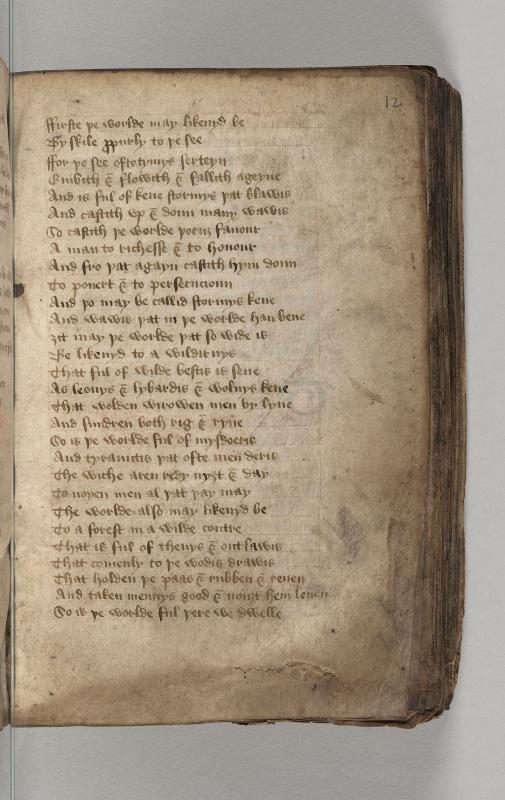 12
ffirste þe worlde may likenyd be
By skile pꝓurly to þe see
ffor þe see oftotymys serteyn
Ebbith & flowith & fallith ageyne
And is ful of kene stormys þat blawis
And castith vp & doun many wawis
So castith þe worlde þoruȝ fauour
A man to richesse & to honour
And fro þat agayn castith hym doun
To pouert & to persecucioun
And þo may be callid stormys kene
And wawis þat in þe worlde han bene
ȝit may þe worlde þat so wide is
Be likenyd to a wildirnys
That ful of wilde bestis is sene
As leouys & lybardis & woluys kene
That wolden wirowen men by lyue
And sindren both rig & ryue
So is þe worlde ful of mysdoeris
And tyrauntis þat ofte men deris
The wiche aren redy nyȝt & day
To noyen men al þat þay may
The worlde also may likenyd be
To a forest in a wilde contre
That is ful of theuys & outlawis
That comenly to þe wodis drawis
That holden þe paas & rubben & reuen
And taken mennys good & nouȝt hem leuen
So is þe worlde ful þere we dwelle